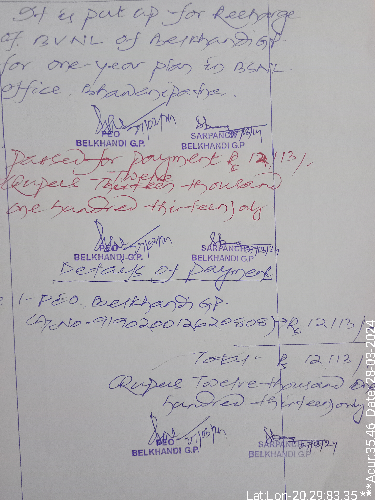 It is put up for Recharge
of BVNL of Belkhandi GP
for one-year plan to BSNL
office, Bhawanipatna.
PEO SARPANCH
BELKHANDI G.P. BELKHANDI G.P.
Passed for payment ₹ 12113/-
(Rupees Twelve thousand
one hundred thirteen) only
PEO SARPANCH
BELKHANDI G.P. BELKHANDI G.P.
Details of payment
1- PEO. Belkhandi GP.
₹ 12113/-
Total- ₹ 12113/-
(Rupees Twelve thousand one
hundred thirteen) only
PEO SARPANCH
BELKHANDI G.P. BELKHANDI G.P.
Lat Lon-20.29:83.35***Acur 35.46 Date:28-03-2024